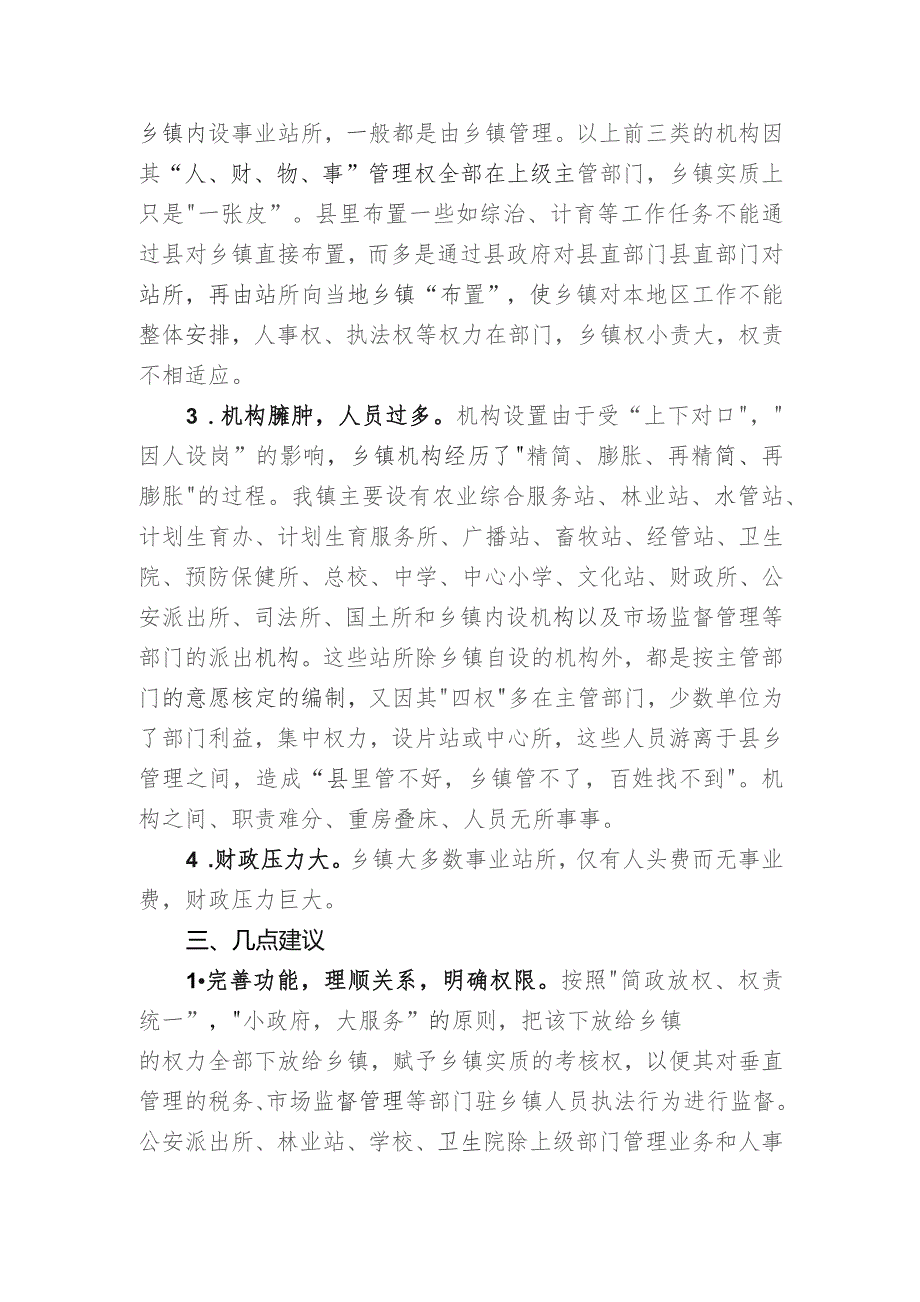 乡镇内设事业站所，一般都是由乡镇管理。以上前三类的机构因
其“人、财、物、事”管理权全部在上级主管部门，乡镇实质上
只是"一张皮”。县里布置一些如综治、计育等工作任务不能通
过县对乡镇直接布置，而多是通过县政府对县直部门县直部门对
站所，再由站所向当地乡镇“布置”，使乡镇对本地区工作不能
整体安排，人事权、执法权等权力在部门，乡镇权小责大，权责
不相适应。
3 .机构臃肿，人员过多。机构设置由于受“上下对口"，"
因人设岗”的影响，乡镇机构经历了"精简、膨胀、再精简、再
膨胀"的过程。我镇主要设有农业综合服务站、林业站、水管站、
计划生育办、计划生育服务所、广播站、畜牧站、经管站、卫生
院、预防保健所、总校、中学、中心小学、文化站、财政所、公
安派出所、司法所、国土所和乡镇内设机构以及市场监督管理等
部门的派出机构。这些站所除乡镇自设的机构外，都是按主管部
门的意愿核定的编制，又因其"四权"多在主管部门，少数单位为
了部门利益，集中权力，设片站或中心所，这些人员游离于县乡
管理之间，造成“县里管不好，乡镇管不了，百姓找不到"。机
构之间、职责难分、重房叠床、人员无所事事。
4 .财政压力大。乡镇大多数事业站所，仅有人头费而无事业
费，财政压力巨大。
三、几点建议
1•完善功能，理顺关系，明确权限。按照"简政放权、权责
统一”，"小政府，大服务”的原则，把该下放给乡镇
的权力全部下放给乡镇，赋予乡镇实质的考核权，以便其对垂直
管理的税务、市场监督管理等部门驻乡镇人员执法行为进行监督。
公安派出所、林业站、学校、卫生院除上级部门管理业务和人事